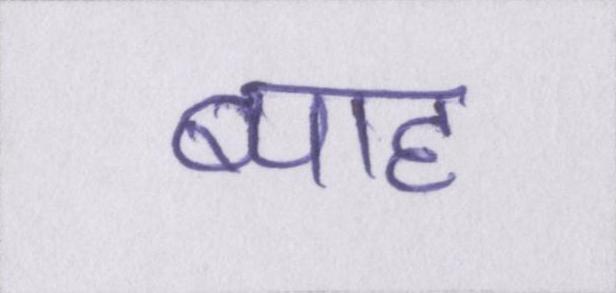 ब्याह